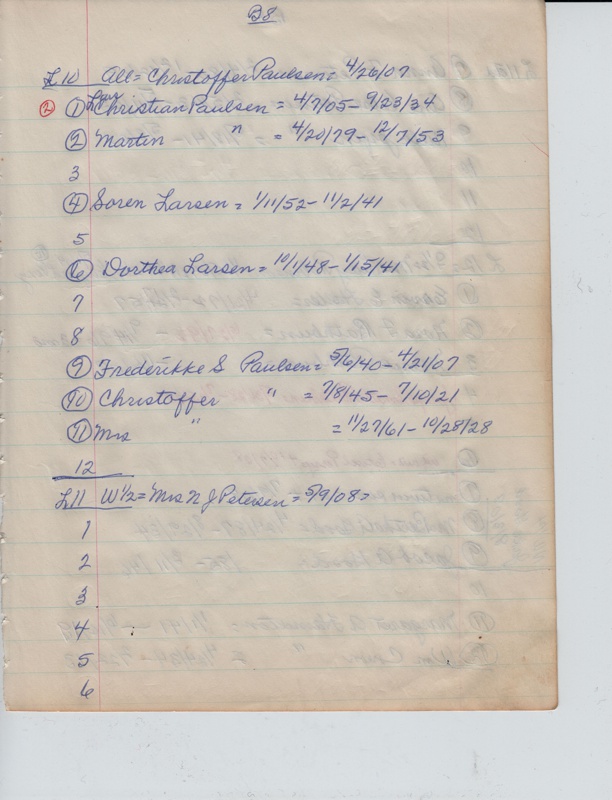 B8
L10 All = Christoffer Paulsen = 4/26/07
② ① Christian Paulsen = 4/7/05 - 9/23/34
② Martin " = 4/20/79 - 12/7/53
3
④ Soren Larsen = 1/11/52 - 11/2/41
5
⑥ Dorthea Larsen = 10/1/48 - 1/15/41
7
8
⑨ Frederikke S Paulsen = 5/6/40 - 4/21/07
⑩ Christoffer " = 7/8/45 - 7/10/21
⑪ Mrs " = 11/27/61 - 10/28/28
12
L11 W 1/2 = Mrs N J Petersen = 5/9/08 =
1
2
3
4
5
6